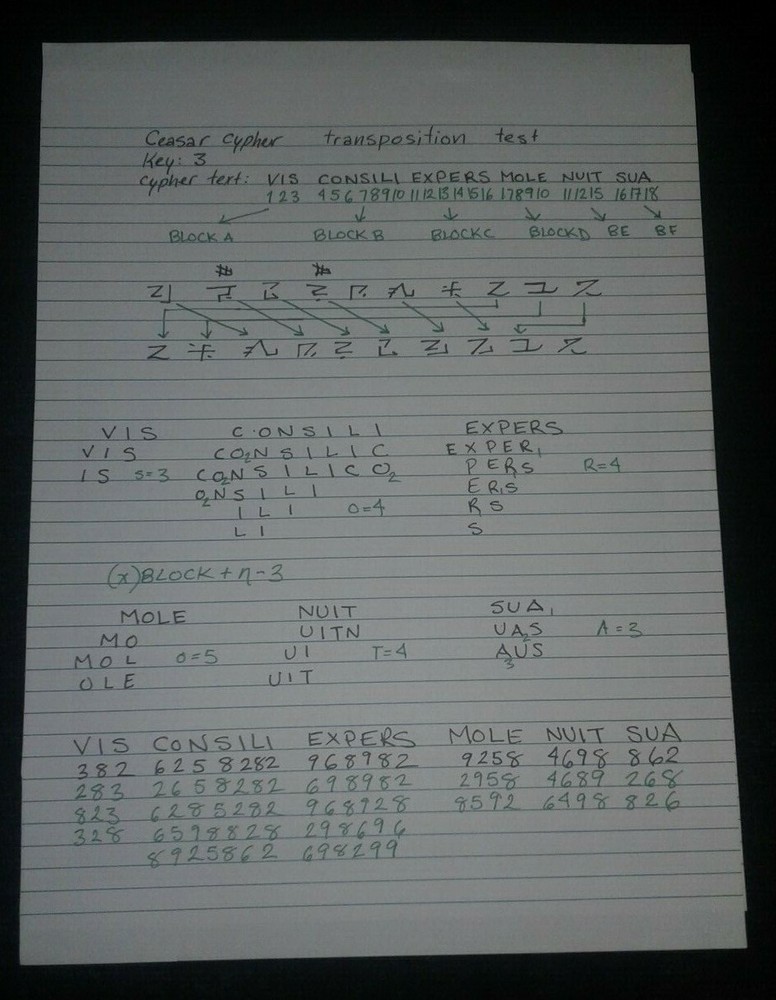 Ceasar cypher transposition test
Key: 3
Cypher text: VIS CONSILI EXPERS MOLE NUIT SUA
1 2 3 4 5 6 7 8 9 10 11 12 13 14 15 16 17 8 9 10 11 12 15 16 17 18
BLOCK A BLOCK B BLOCK C BLOCK D BE BF
VIS CONSILI EXPERS
VIS CO₂NSILIC EXPER₁
IS S=3 CO₂NSILICO₂ PERS R=4
O₂NSILI ERS
ILI O=4 RS
LI S
(x)BLOCK + n-3
MOLE NUIT SUA₁
MO UITN UA₂S A=3
MOL O=5 UI T=4 A₃US
OLE UIT
VIS CONSILI EXPERS MOLE NUIT SUA
382 6258282 968982 9258 4698 862
283 2658282 698982 2958 4689 268
823 6285282 968928 8592 6498 826
328 6598828 298696
8925862 698299